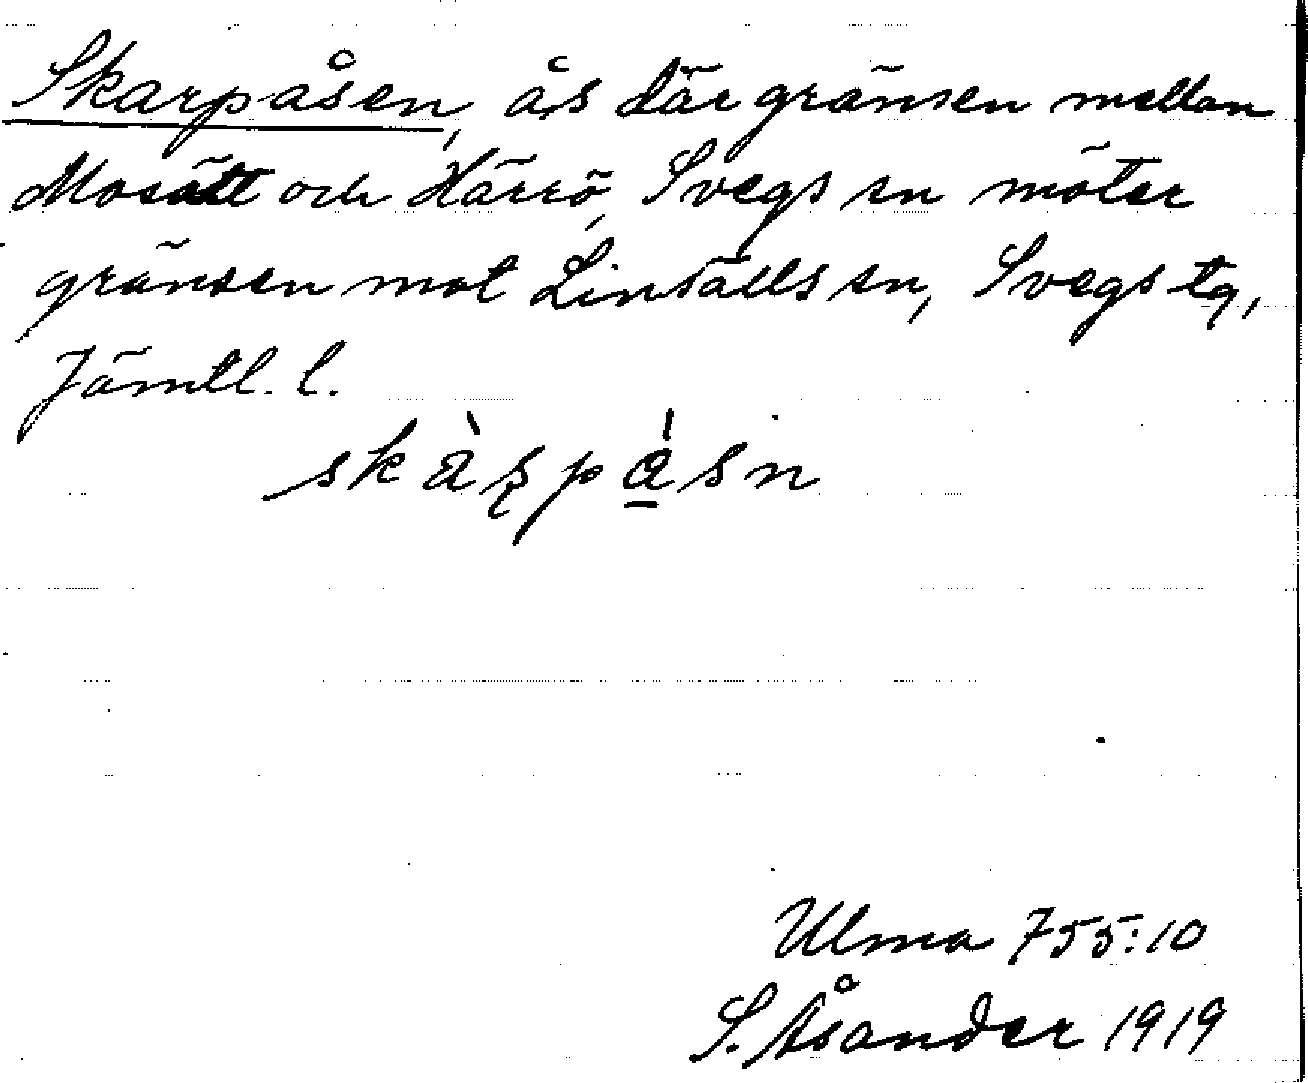 Skarpåsen, ås där gränsen mellan
Mosätt och Härrö, Svegs sn möter
gränsen mot Linsälls sn, Svegs tg,
Jämtl. l.
skàʂpǻsn
Ulma 755:10
S. Åsander 1919